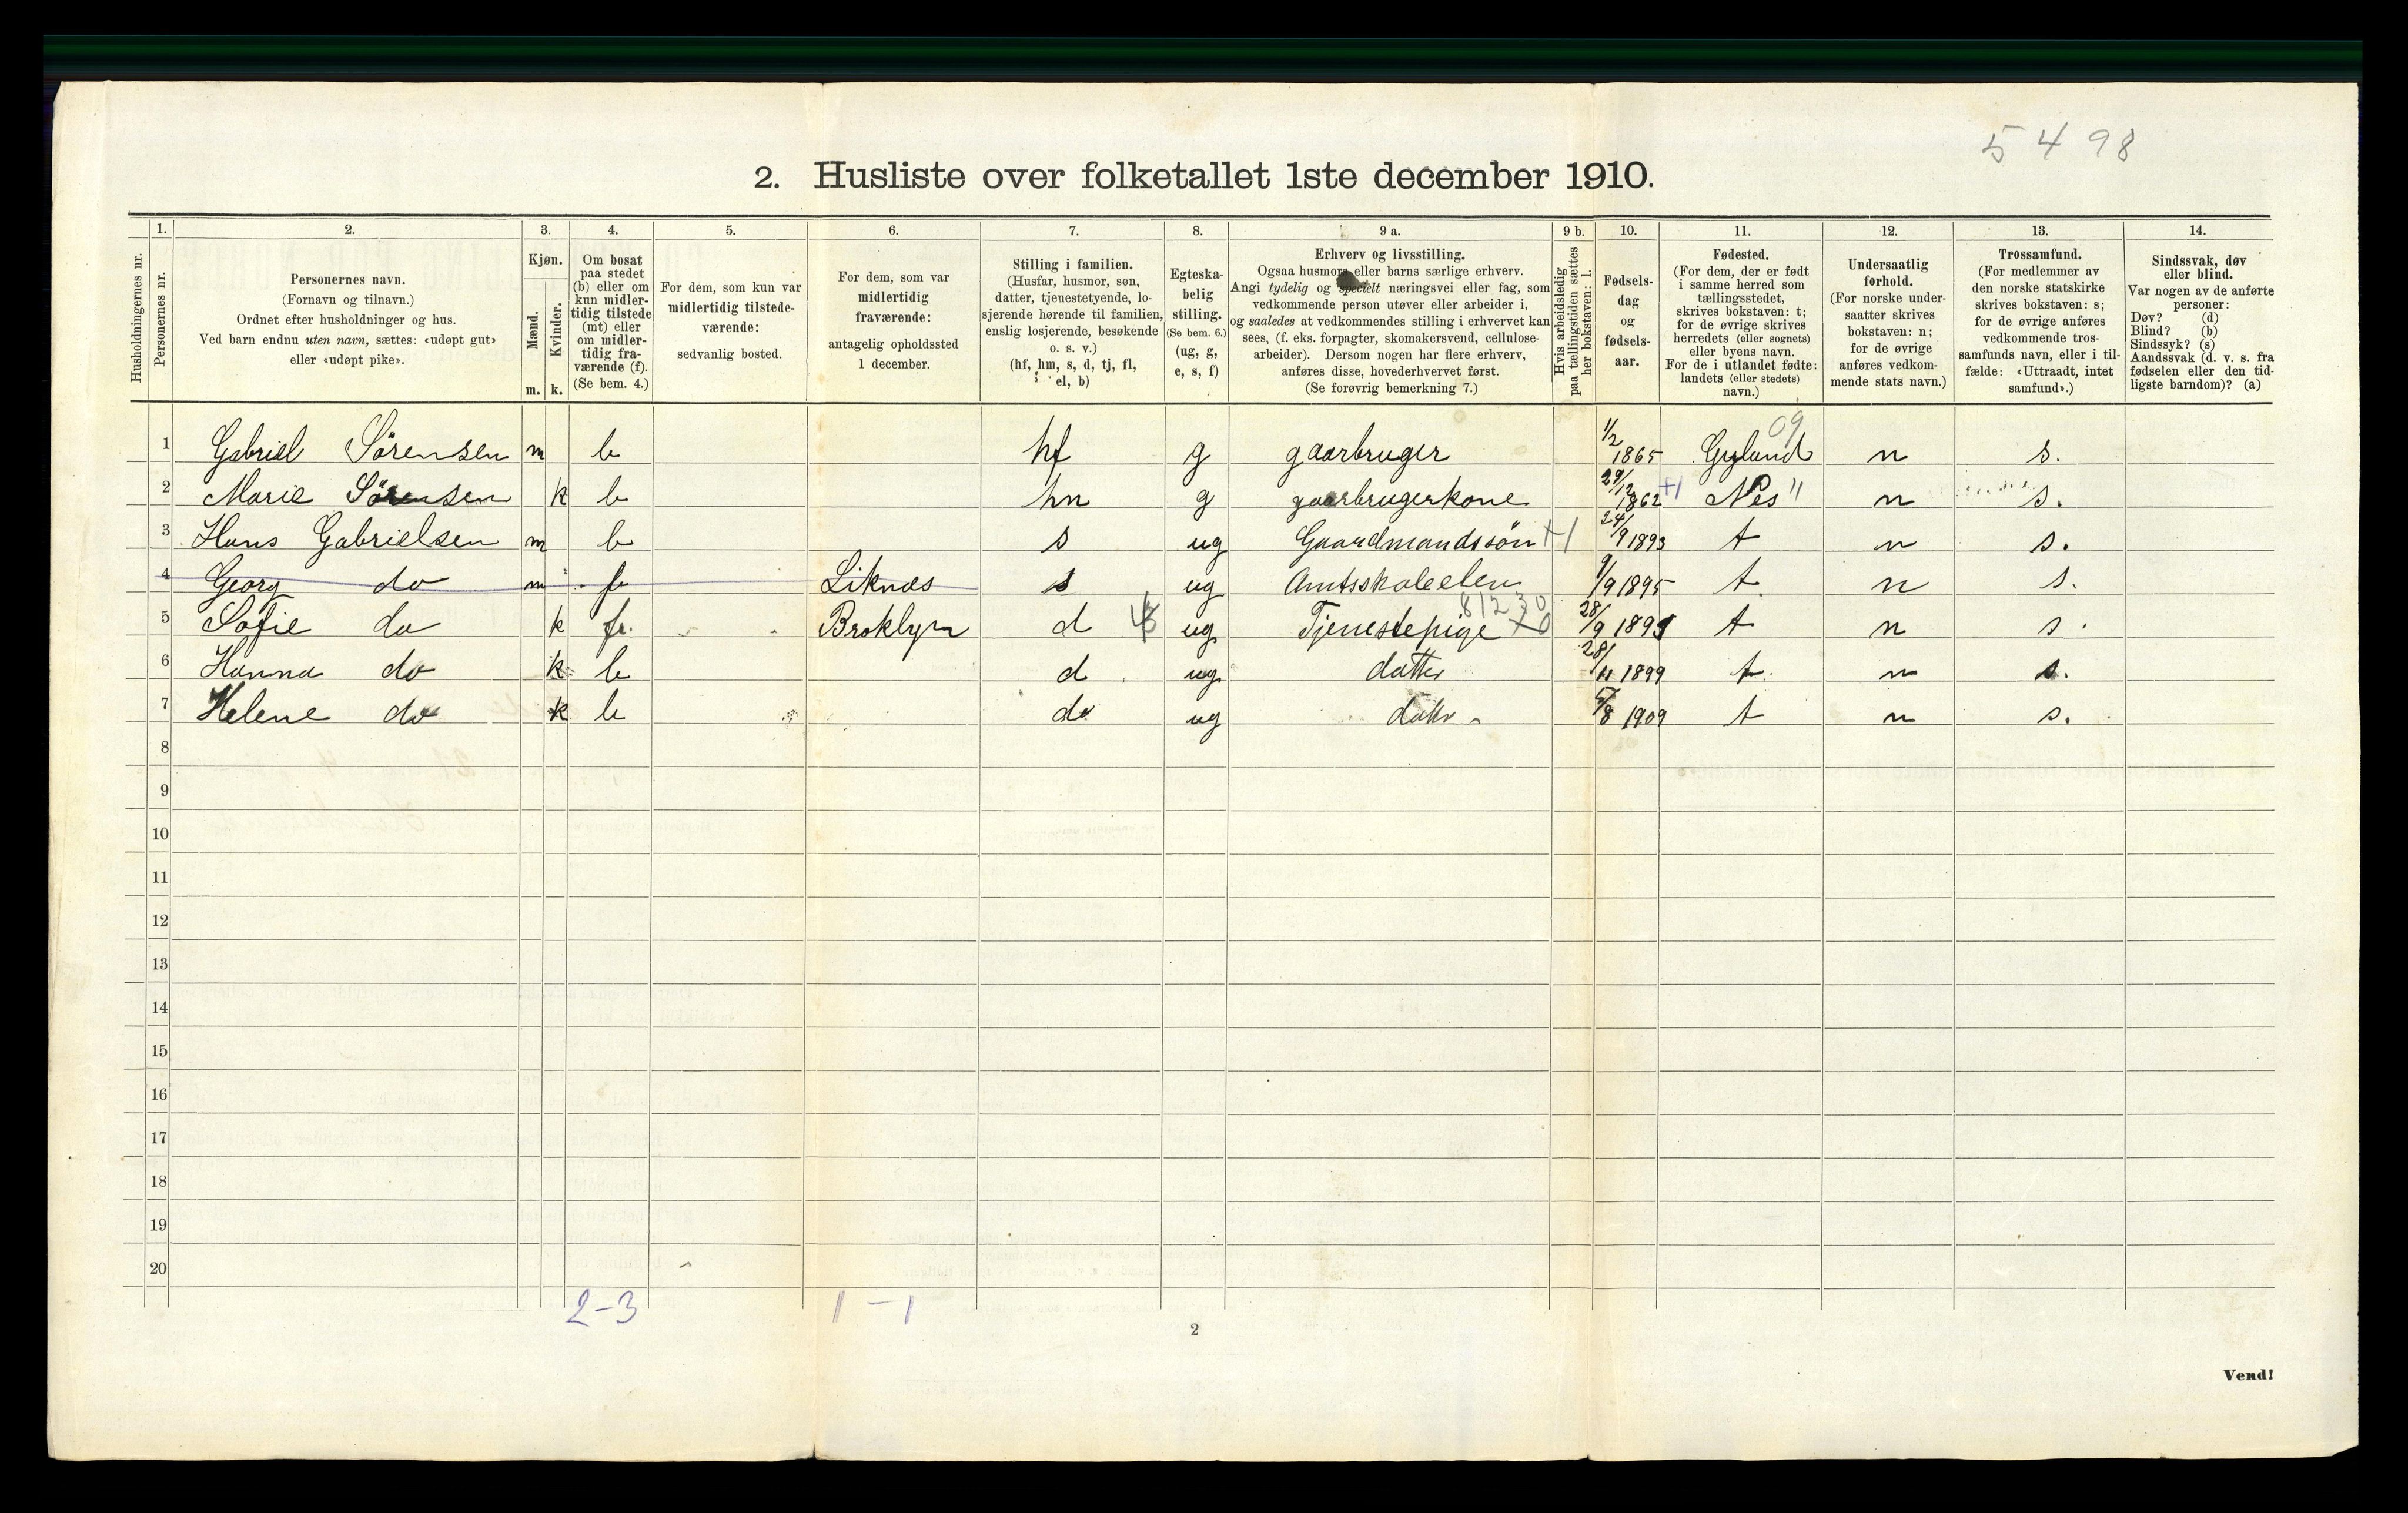 5 4 98
2. Husliste over folketallet 1ste december 1910.
1. 2. 3. 4. 5. 6. 7. 8. 9 a. 9 b. 10. 11. 12. 13. 14.
Husholdningernes nr.
Personernes nr.
Personernes navn.
(Fornavn og tilnavn.)
Ordnet efter husholdninger og hus.
Ved barn endnu uten navn, sættes: «udøpt gut»
eller «udøpt pike».
Kjøn.
Mænd.
Kvinder.
m. k.
Om bosat
paa stedet
(b) eller om
kun midler-
tidig tilstede
(mt) eller
om midler-
tidig fra-
værende (f).
(Se bem. 4.)
For dem, som kun var
midlertidig tilstede-
værende:
sedvanlig bosted.
For dem, som var
midlertidig
fraværende:
antagelig opholdssted
1 december.
Stilling i familien.
(Husfar, husmor, søn,
datter, tjenestetyende, lo-
sjerende hørende til familien,
enslig losjerende, besøkende
o. s. v.)
(hf, hm, s, d, tj, fl,
el, b)
Egteska-
belig
stilling.
(Se bem. 6.)
(ug, g,
e, s, f)
Erhverv og livsstilling.
Ogsaa husmors eller barns særlige erhverv.
Angi tydelig og specielt næringsvei eller fag, som
vedkommende person utøver eller arbeider i,
og saaledes at vedkommendes stilling i erhvervet kan
sees, (f. eks. forpagter, skomakersvend, cellulose-
arbeider). Dersom nogen har flere erhverv,
anføres disse, hovederhvervet først.
(Se forøvrig bemerkning 7.)
Hvis arbeidsledig
paa tællingstiden sættes
her bokstaven: l.
Fødsels-
dag
og
fødsels-
aar.
Fødested.
(For dem, der er født
i samme herred som
tællingsstedet,
skrives bokstaven: t;
for de øvrige skrives
herredets (eller sognets)
eller byens navn.
For de i utlandet fødte:
landets (eller stedets)
navn.)
Undersaatlig
forhold.
(For norske under-
saatter skrives
bokstaven: n;
for de øvrige
anføres vedkom-
mende stats navn.)
Trossamfund.
(For medlemmer av
den norske statskirke
skrives bokstaven: s;
for de øvrige anføres
vedkommende tros-
samfunds navn, eller i til-
fælde: «Uttraadt, intet
samfund».)
Sindssvak, døv
eller blind.
Var nogen av de anførte
personer:
Døv? (d)
Blind? (b)
Sindssyk? (s)
Aandssvak (d. v. s. fra
fødselen eller den tid-
ligste barndom)? (a)
09
1 Gabriel Sörensen m b hf g gaarbruger 1/2 1865 Gyland n s.
2 Marie Sörensen k b hm g gaarbrugerkone 29/12 1862 +1 Nes " n s.
3 Hans Gabrielsen m b s ug Gaardmandssön +1 24/9 1893 t n s.
4 Georg do m f Liknæs s ug Amtsskoleelev 9/9 1895 t n s.
81230
5 Sofie do k fr. Broklyn d ug Tjenestepige 28/9 1891 t n s.
6 Hanna do k b d ug datter 28/11 1899 t. n s.
7 Helene do k b d ug datter 5/8 1909 t n s.
8
9
10
11
12
13
14
15
16
17
18
19
20
2-3 1-1
2
Vend!